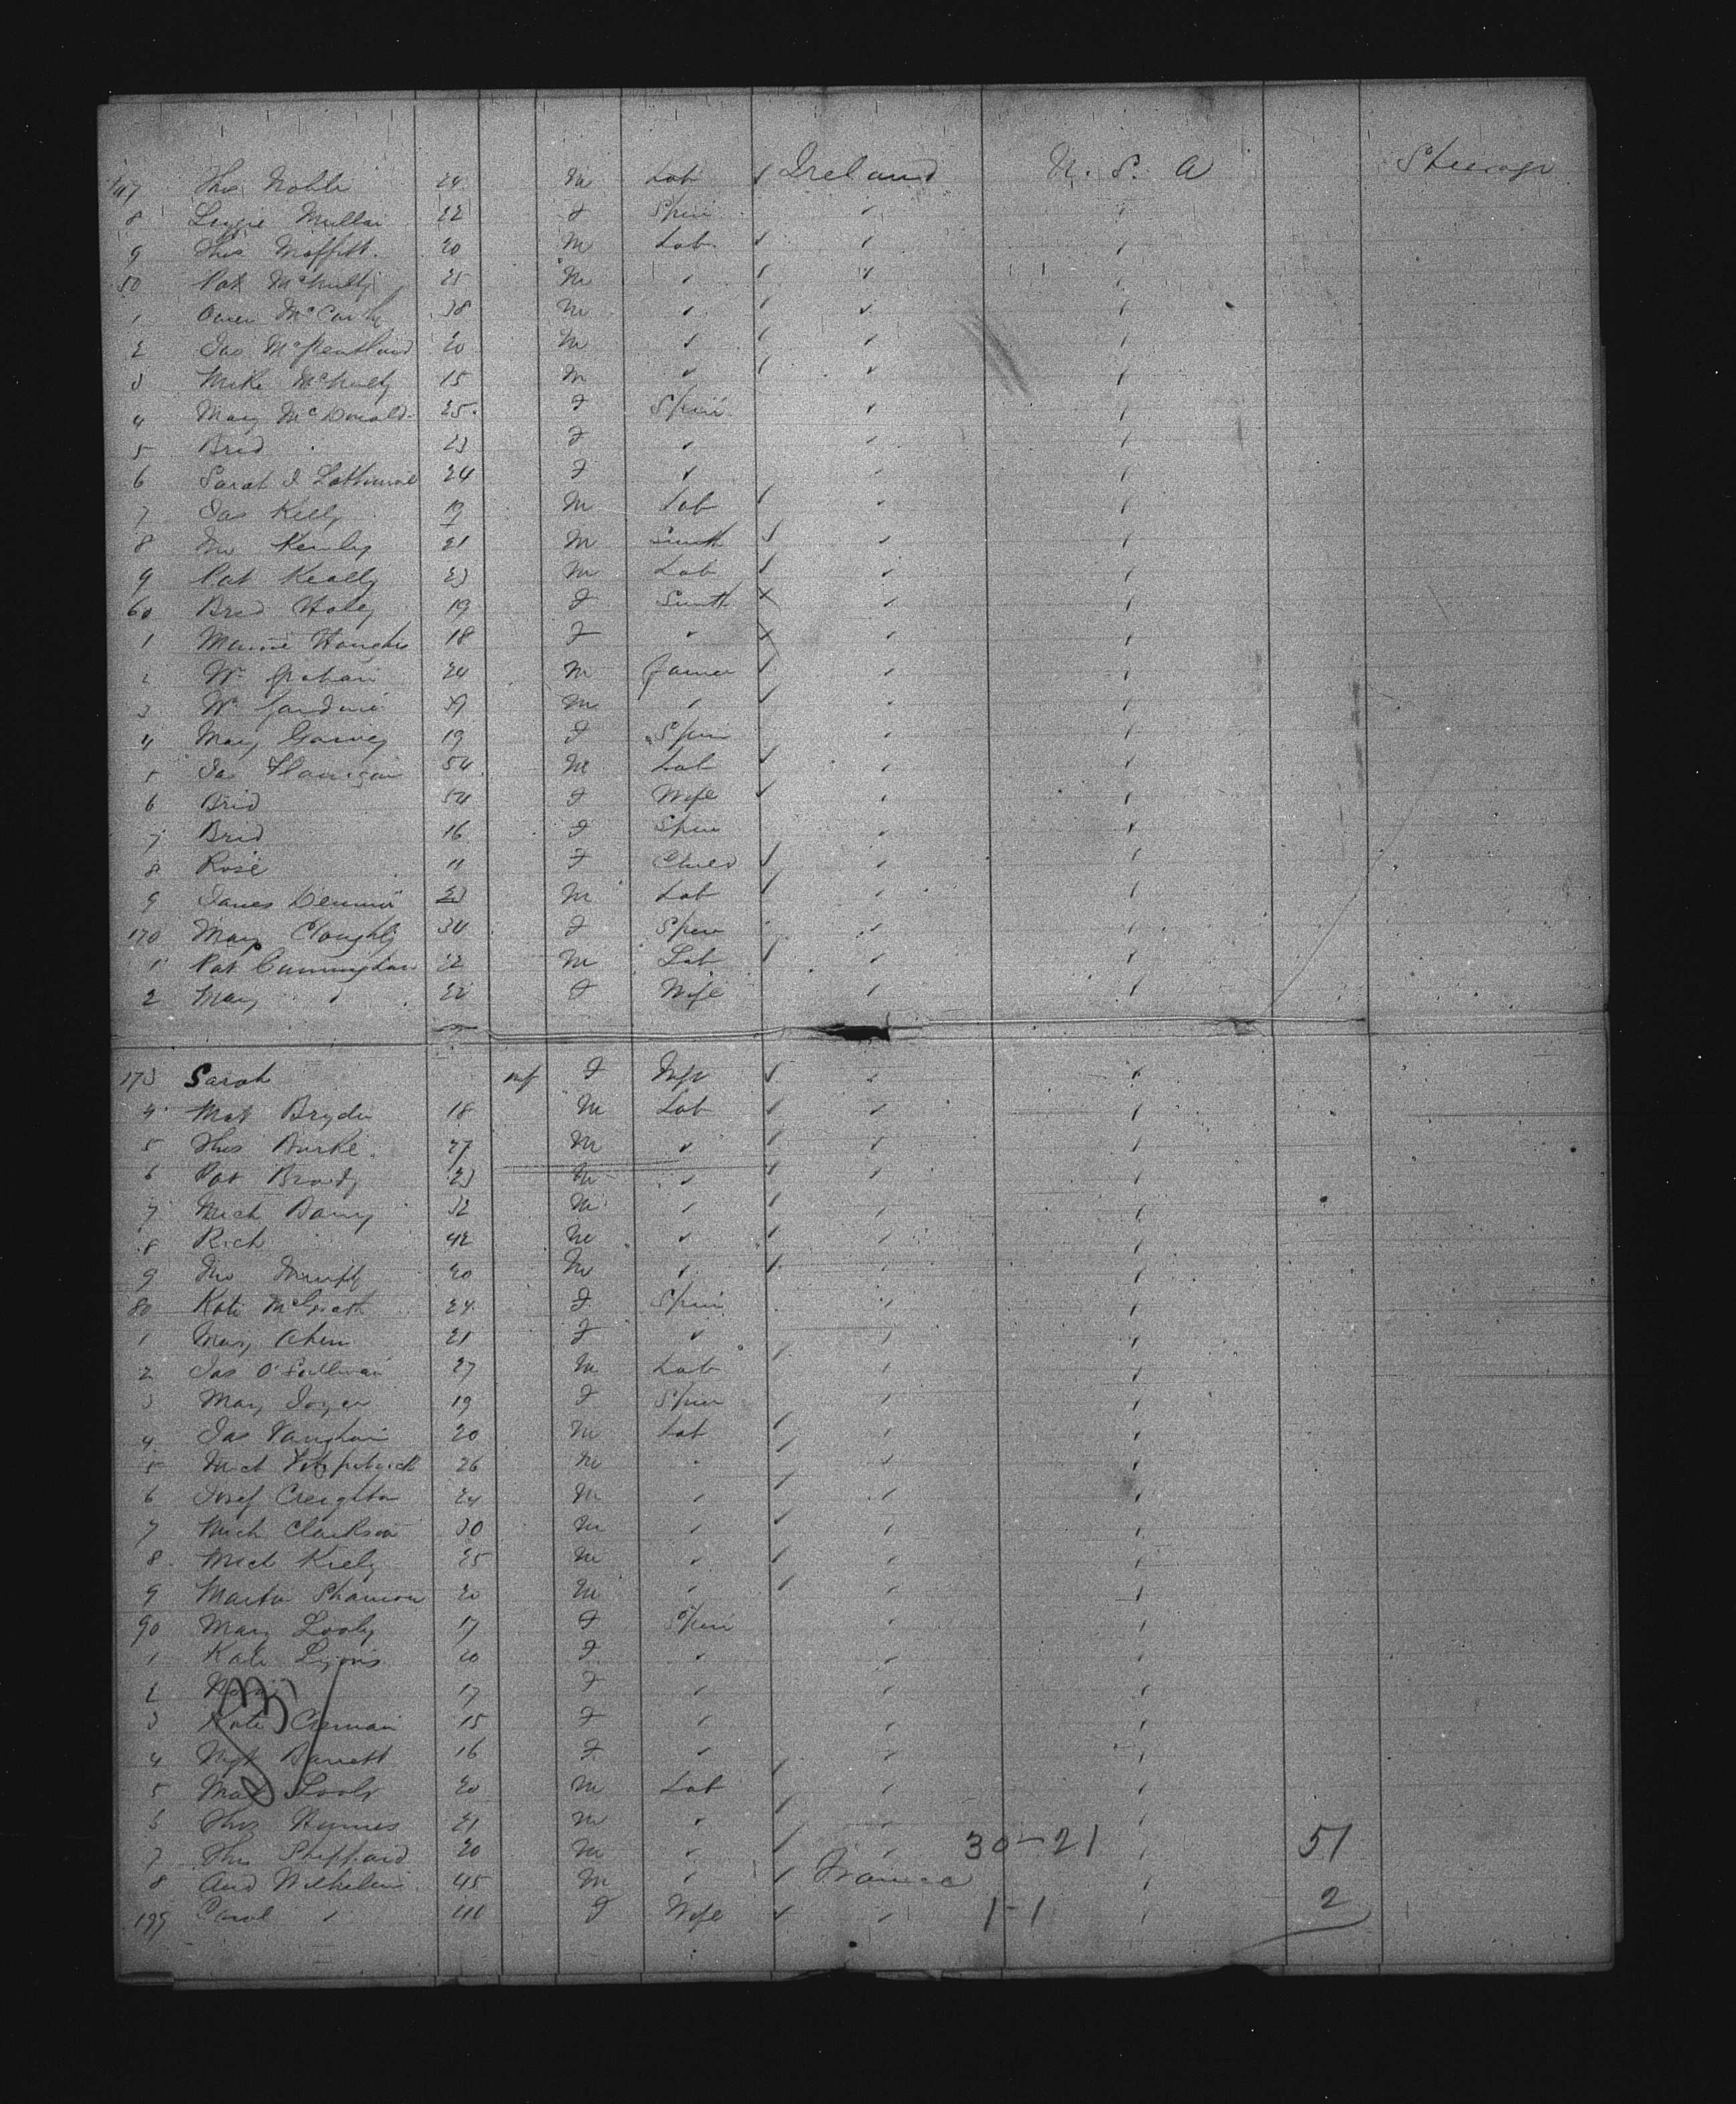 147 Thos Noble 24 M Lab Ireland U. S. A Steerage
8 Lizzie Mullan 22 F Spin
9 Thos Moffitt 20 M Lab
50 Pat McNulty 25 M "
1 Owen McCarthy 38 M "
2 Jas 20 M "
3 Mike McNulty 15 M "
4 Mary McDonald 25 F Spin
5 Brid " 23 F "
6 Sarah J 24 F "
7 Jas Kelly 19 M Lab
8 Jno 21 M Smith
9 Pat Keally 23 M Lab
60 Brid Haley 19 F Smith
1 Hughes 18 F "
2 Wm Graham 24 M Farmer
3 Wm Gardiner 39 M "
4 Mary Garvey 19 F Spin
5 Jas Flanigan 54 M Lab
6 Brid 54 F Wife
7 Brid 16 F Spin
8 Rose 11 F Child
9 James 23 M Lab
170 Mary Cloughly 34 F Spin
1 Pat Cunningham 22 M Lab
2 Mary " 22 F Wife
173 Sarah inf F Inft
4 Mat Bryden 18 M Lab
5 Thos Burke 27 M "
6 Pat Brady 23 M "
7 Mich Barry 32 M "
8 Rich 42 M "
9 Jno 20 M "
80 Kate McGrath 24 F Spin
1 Mary Ahern 21 F "
2 Jas O'Sullivan 27 M Lab
3 Mary Joyce 19 F Spin
4 Jas Vaughan 20 M Lab
5 Mich Fitzpatrick 26 M "
6 Josef Creighton 24 M "
7 Mich Clarkson 30 M "
8 Mich Kiely 25 M "
9 Martin Shannon 20 M "
90 Mary Looby 17 F Spin
1 Kate Lyons 20 F "
2 17 F "
3 Kate 15 F "
4 Mgt Barrett 16 F "
5 20 M Lab
6 Thos Hynes 21 M "
7 Thos Sheppard 20 M " 30-21 51
8 And Wilhelm 45 M " France
199 Carol " F Wife " 1-1 2